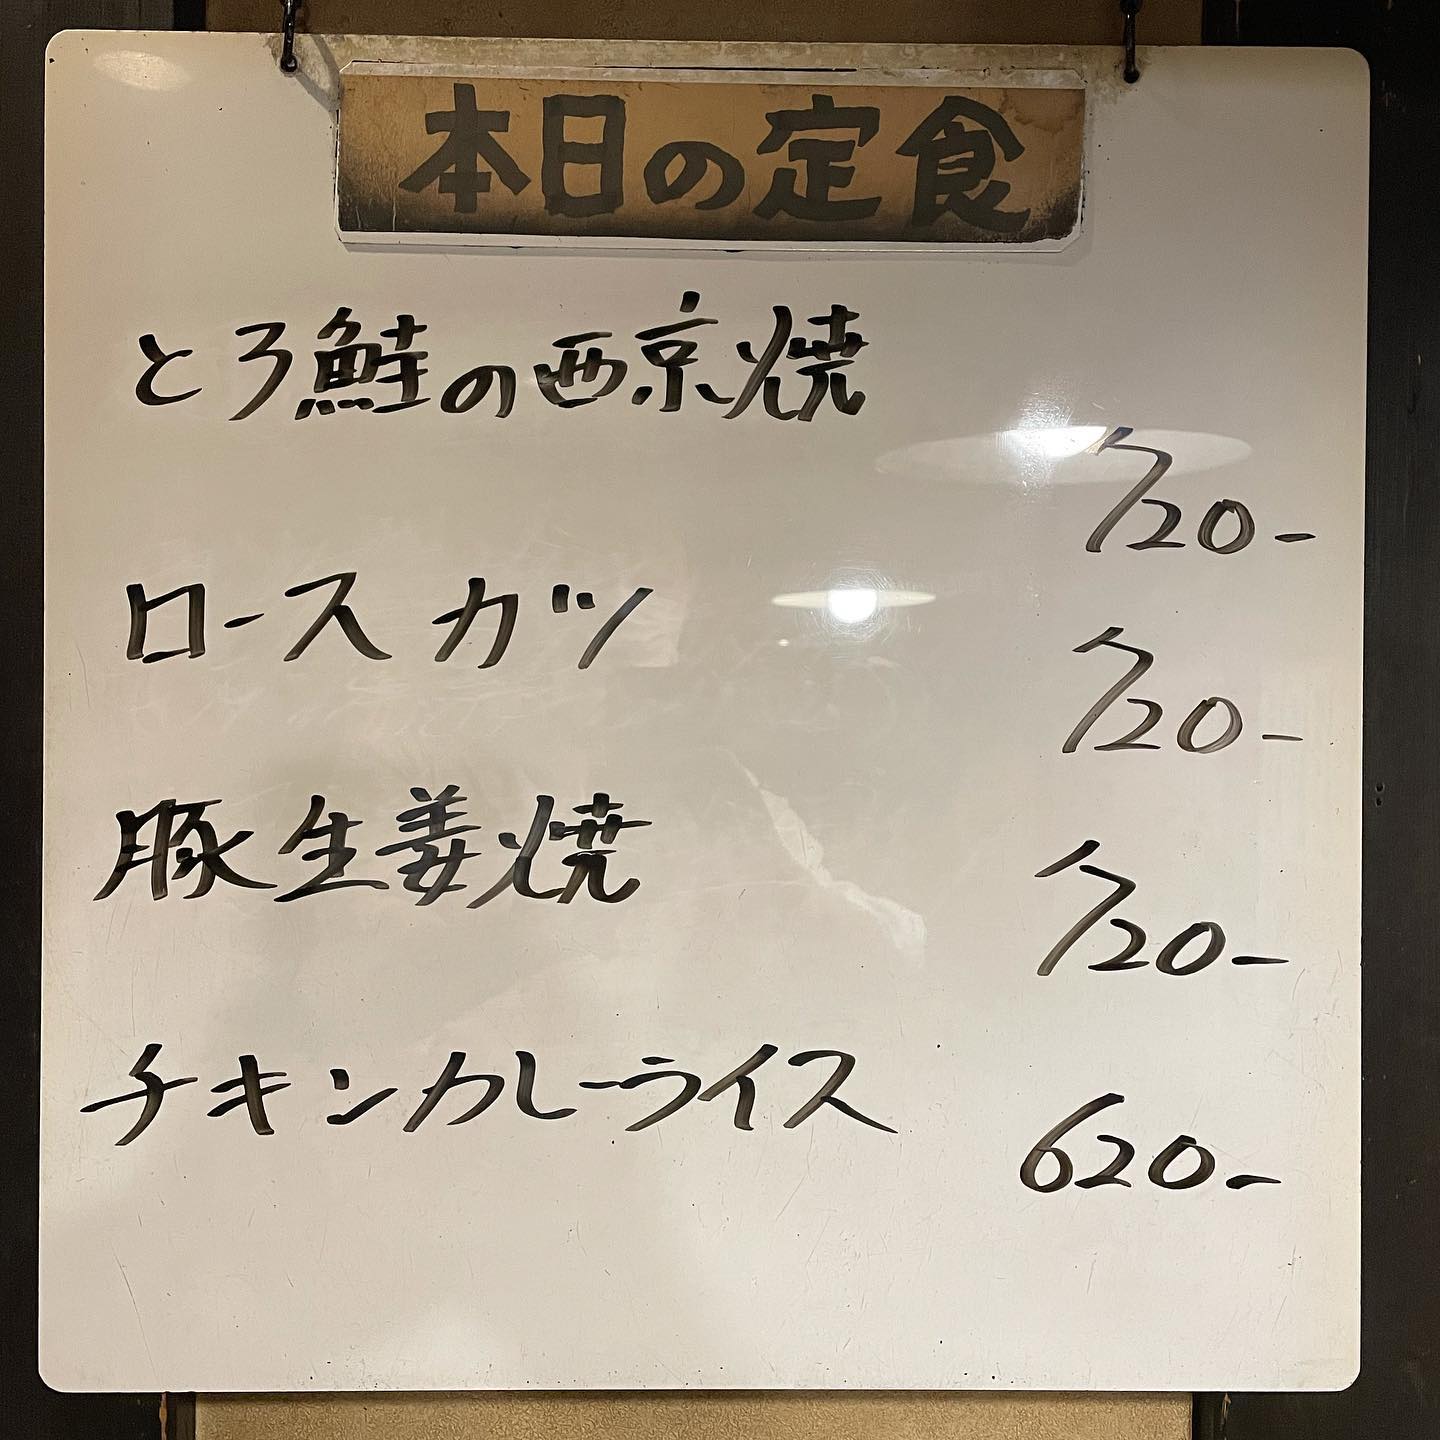 本日の定食
とろ鮭の西京焼
720-
ロースカツ
720-
豚生姜焼
720-
チキンカレーライス
620-